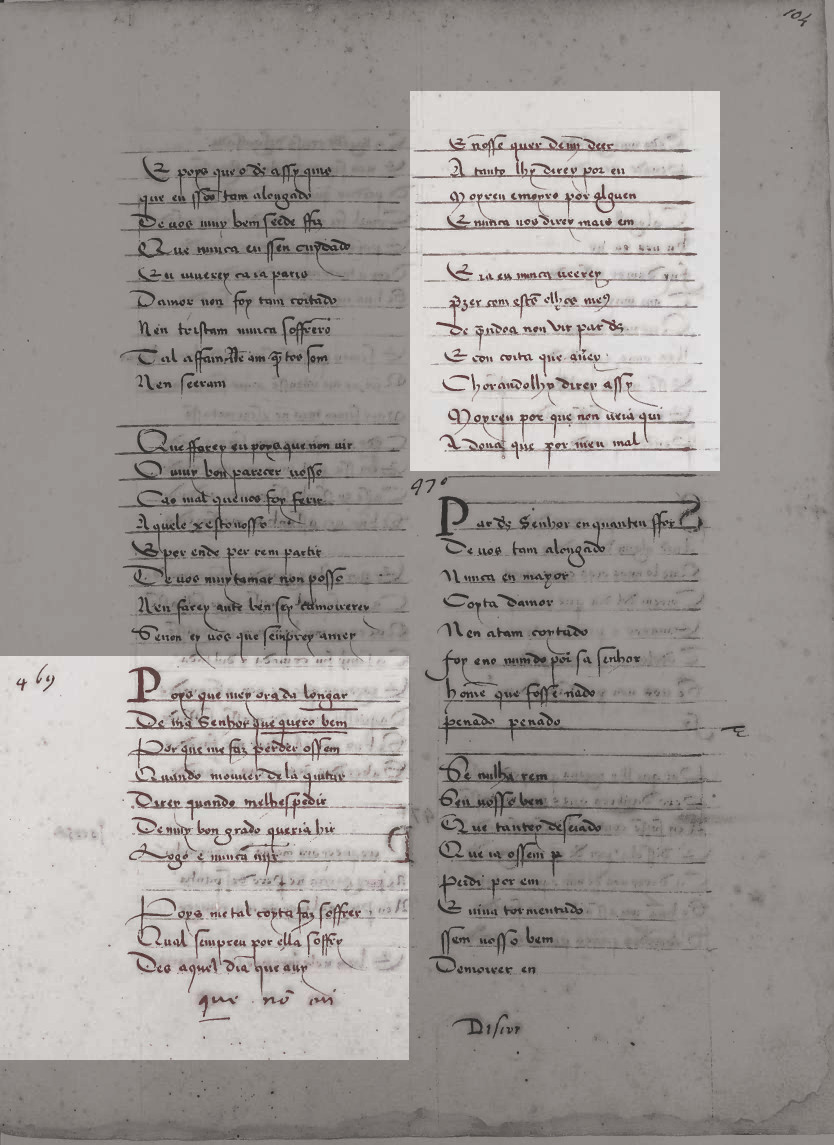 104
E poys que o ds assy quis
que eu ssõo tam alongado
De uos muy bem seede ffiz
Que nunca eu ssen cuydado
Eu uiuerey ca ia paris
Damor non foy tam coitado
Nen tristam nunca soffrerõ
Tal affam nẽ am qãtos som
Nen seeram
Que ffarey eu poys que non uir
O muy bon parecer uosso
Cao mal que uos foy ferir
Aquele x esto uosso
E por ende per rem partir
De uos muytamar non posso
Nen farey ante ben sey ca moirerey
Senon ey uos que semprey amey
469
Poys que mey ora da longar
De mha Senhor que quero bem
Por que me faz perder ossem
Quando mouuer dela quitar
Direy quando melhespedir
De muy bon grado queria hir
Logo e nunca uijr
Poys me tal coyta faz soffrer
Qual sempreu por ella soffry
Des aquel dia que a uy
que nõ ui
E nõsse quer demĩ deer
A tanto lhy direy por en
Moyreu e moyro por alguen
E nunca uos direy mais em
E ia eu nunca ueerey
prazer com estes olhos meus
De quando a non uir par ds
E con coita que auerey
Chorandolhy direy assy
Moyreu por que non ueia qui
A dona que por meu mal
470
Par ds Senhor en quanten ffor
De uos tam alongado
Nunca en mayor
Coyta damor
Nen atam coytado
foy eno mundo por sa senhor
home que fosse nado
penado penado
Se nulha rem
Sen uosso ben
Que tantey deseiado
Que ia ossem p
Perdi por em
E uiuo tormentado
ssem uosso bem
De moirer en
Discor